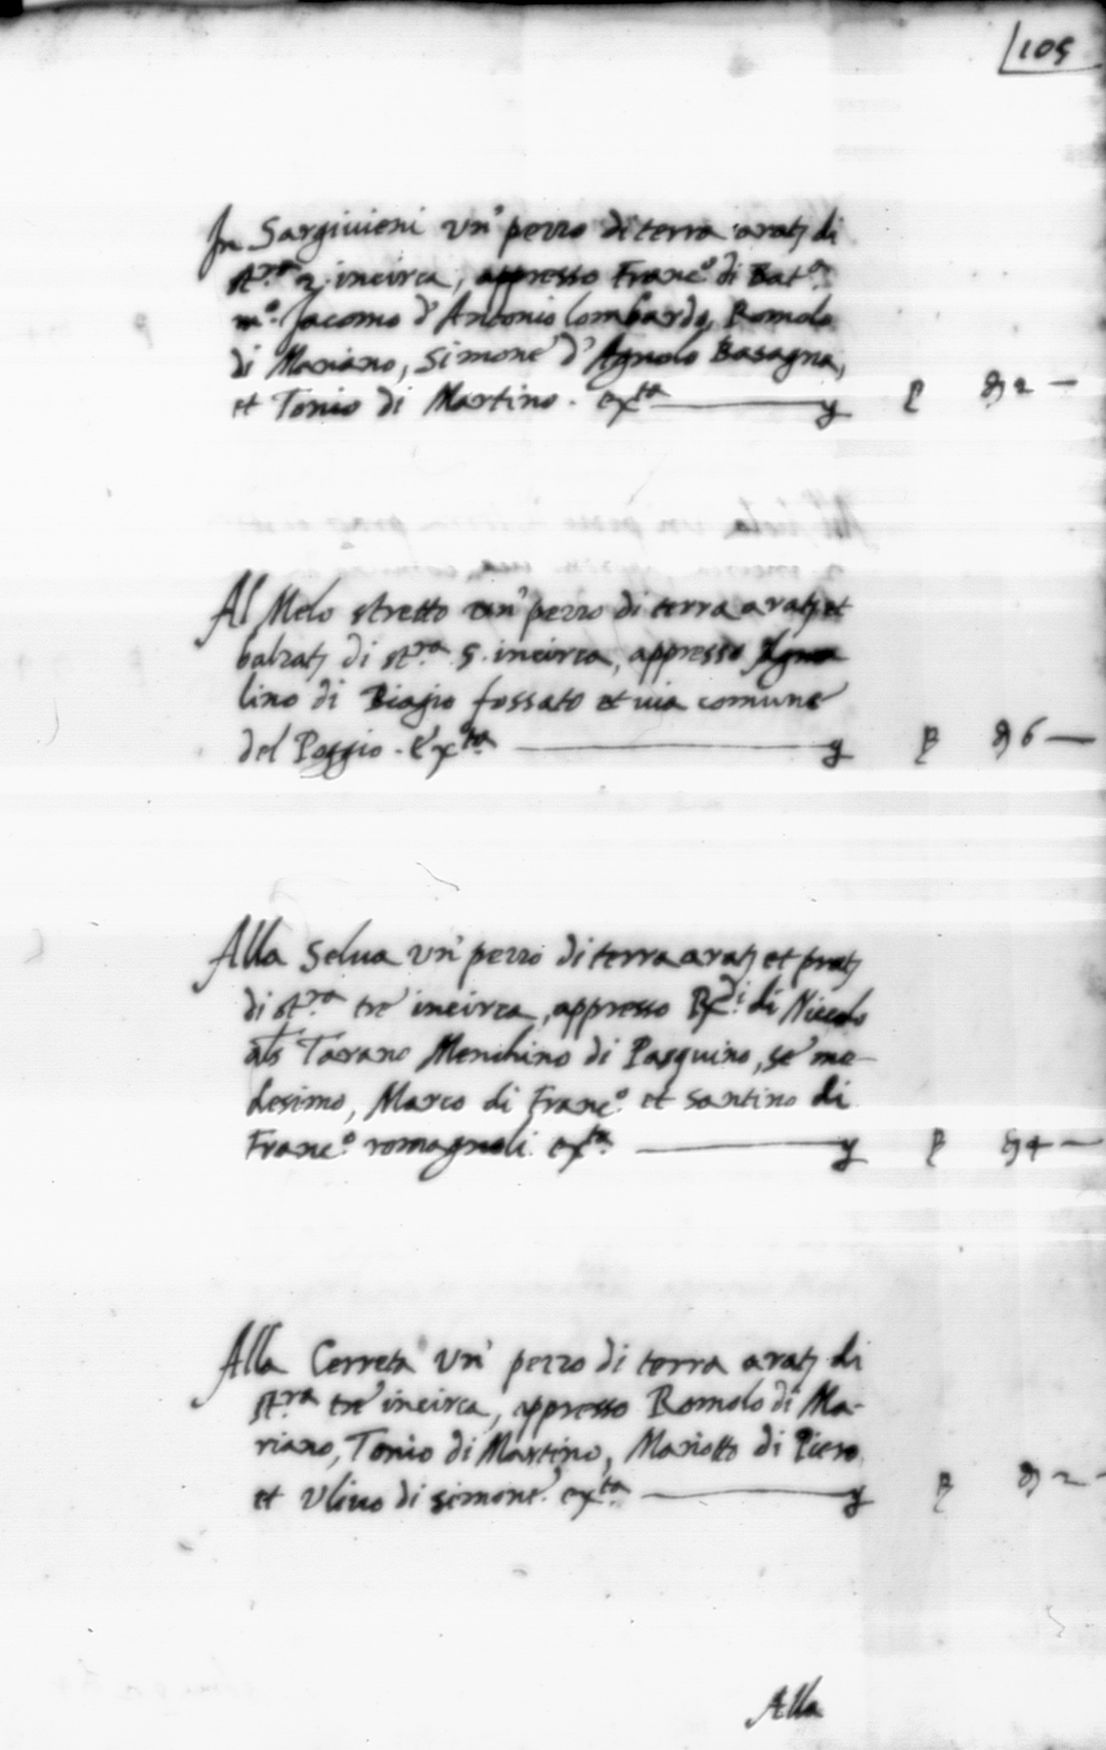 105
In Sargiuieni un' pezzo di terra arat; di
st.ra 2. incirca, appresso Franc.o di Bat.a
m.o Jacomo d'Antonio lombardo, Romolo
di Mariano, Simone d'Agnolo Basagna,
et Tonio di Martino. ex.ta 2 —
Al Melo stretto un' pezzo di terra arat; et
balzat; di st.ra 5. incirca, appresso Agno
lino di Biagio fossato et uia comune
del Poggio. Ex.ta 6 —
Alla Selua un' pezzo di terra arat; et prat;
di st.ra tre incirca, appresso di Niccolo
als Tarano Menchino di Pasquino, se me-
desimo, Marco di Franc.o et santino di
Franc.o romagnoli. ex.ta 4 —
Alla Cerreta un' pezzo di terra arat; di
st.ra tre incirca, appresso Romolo di Ma-
riano, Tonio di Martino, Mariotto di Piero
et Uliuo di simone. ex.ta 2 -
Alla